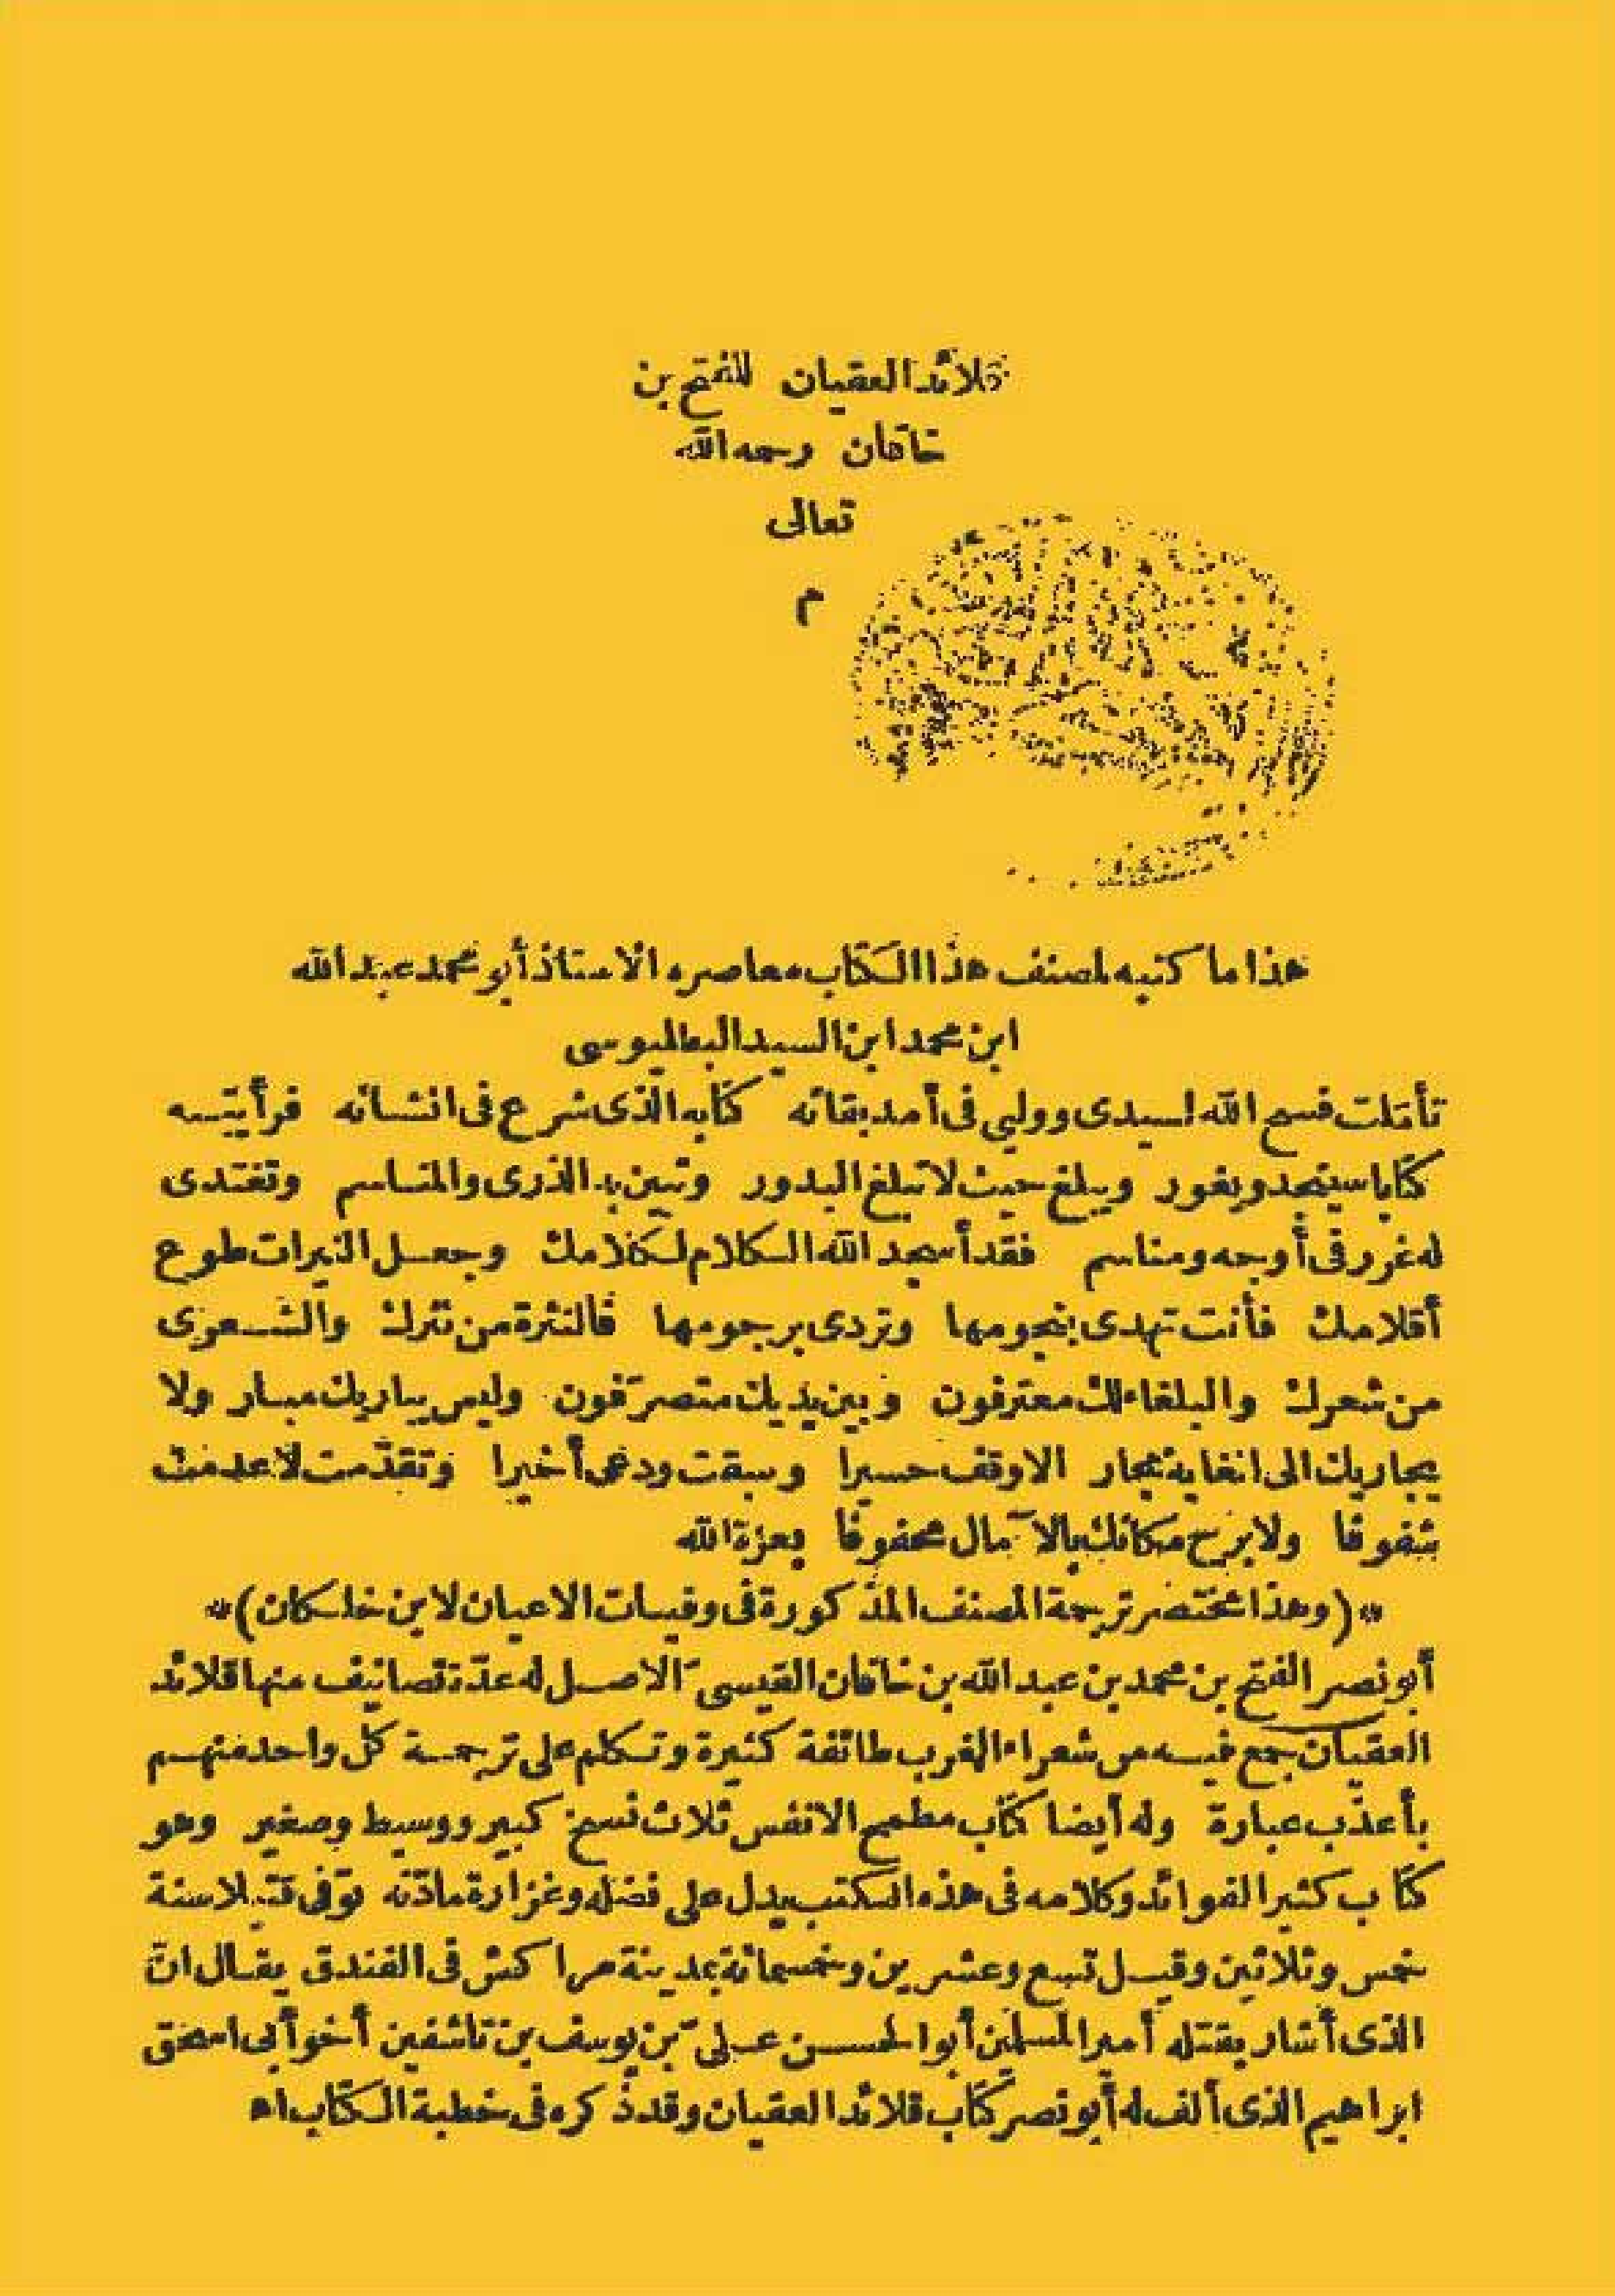 قلائد العقيان للفتح بن
خاقان رحمه الله
تعالى
م
هذا ما كتبه لمصنف هذا الكتاب معاصره الاستاذ أبو محمد عبد الله
ابن محمد ابن السيد البطليوسى
تأملت فسح الله لسيدى ووليي فى أمد بقائه كتابه الذى شرع فى انشائه فرأيته
كتابا سينجد ويغور ويبلغ حيث لا تبلغ البدور وتبين به الذرى والمناسم وتغتدى
له غرر فى أوجه ومناسم فقد أسجد الله الكلام لكلامك وجعل النيرات طوع
أقلامك فأنت تهدى بنجومها وتردى برجومها فالنثرة من نثرك والشعرى
من شعرك والبلغاء لك معترفون وبين يديك متصرّفون وليس يباريك مبار ولا
يجاريك الى الغاية مجار الا وقف حسيرا وسبقت ودعى أخيرا وتقدّمت لا عدمت
شفوفا ولا برح مكانك بالآمال محفوفا بعزة الله
*(وهذا مختصر ترجمة المصنف المذكورة فى وفيات الاعيان لابن خلكان)*
أبو نصر الفتح بن محمد بن عبد الله بن خاقان القيسىّ الاصل له عدّة تصانيف منها قلائد
العقيان جمع فيه من شعراء الغرب طائفة كثيرة وتكلم على ترجمة كل واحد منهم
بأعذب عبارة وله أيضا كتاب مطمح الانفس ثلاث نسخ كبير ووسيط وصغير وهو
كتاب كثير الفوائد وكلامه فى هذه الكتب يدل على فضله وغزارة مادّته توفى قتيلا سنة
خمس وثلاثين وقيل تسع وعشرين وخمسمائة بمدينة مراكش فى الفندق يقال انّ
الذى أشار بقتله أمير المسلمين أبو الحسن علىّ بن يوسف بن تاشفين أخو أبى اسحق
ابراهيم الذى ألف له أبو نصر كتاب قلائد العقيان وقد ذكره فى خطبة الكتاب اه